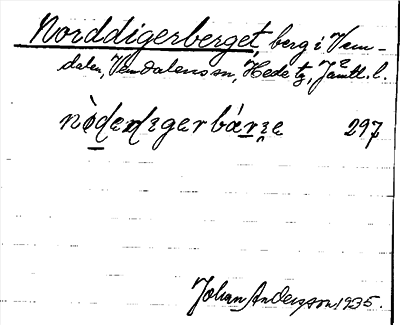 Norddigerberget, berg i Vem-
dalen, Vemdalens sn, Hede tg, Jämtl. l.
nòderdigerbárie 297
Johan Andersson 1935.